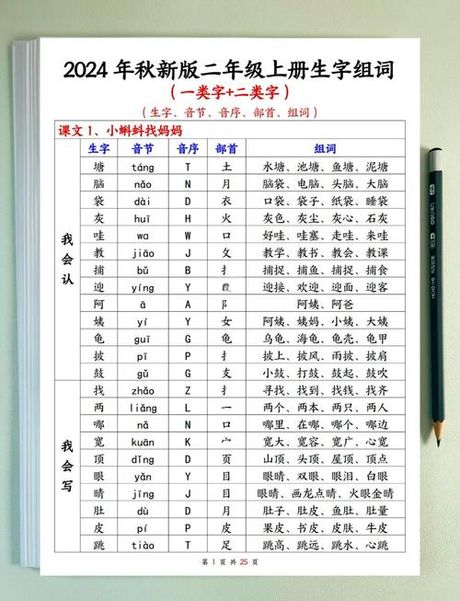 2024年秋新版二年级上册生字组词
(一类字+二类字)
(生字、音节、音序、部首、组词)
课文1、小蝌蚪找妈妈
生字 音节 音序 部首 组词
我会认
塘 táng T 土 水塘、池塘、鱼塘、泥塘
脑 nǎo N 月 脑袋、电脑、头脑、大脑
袋 dài D 衣 口袋、袋子、纸袋、睡袋
灰 huī H 火 灰色、灰尘、灰心、石灰
哇 wa W 口 好哇、哇塞、走哇、来哇
教 jiāo J 攵 教学、教书、教会、教课
捕 bǔ B 扌 捕捉、捕鱼、捕捞、捕食
迎 yíng Y 迎接、欢迎、迎面、迎客
阿 ā A 阝 阿姨、阿爸
姨 yí Y 女 阿姨、姨妈、小姨、大姨
龟 guī G 龟 乌龟、海龟、龟壳、龟甲
披 pī P 扌 披上、披风、雨披、披肩
鼓 gǔ G 支 小鼓、打鼓、鼓起、鼓吹
我会写
找 zhǎo Z 扌 寻找、找到、找钱、找齐
两 liǎng L 一 两个、两本、两只、两人
哪 nǎ N 口 哪里、在哪、哪个、哪边
宽 kuān K 宀 宽大、宽容、宽广、心宽
顶 dǐng D 页 山顶、头顶、屋顶、顶点
眼 yǎn Y 目 眼睛、双眼、眼泪、白眼
睛 jīng J 目 眼睛、画龙点睛、火眼金睛
肚 dù D 月 肚子、肚皮、鱼肚、肚量
皮 pí P 皮 果皮、书皮、皮肤、牛皮
跳 tiào T 足 跳高、跳远、跳水、心跳
第 1 页 共 25 页